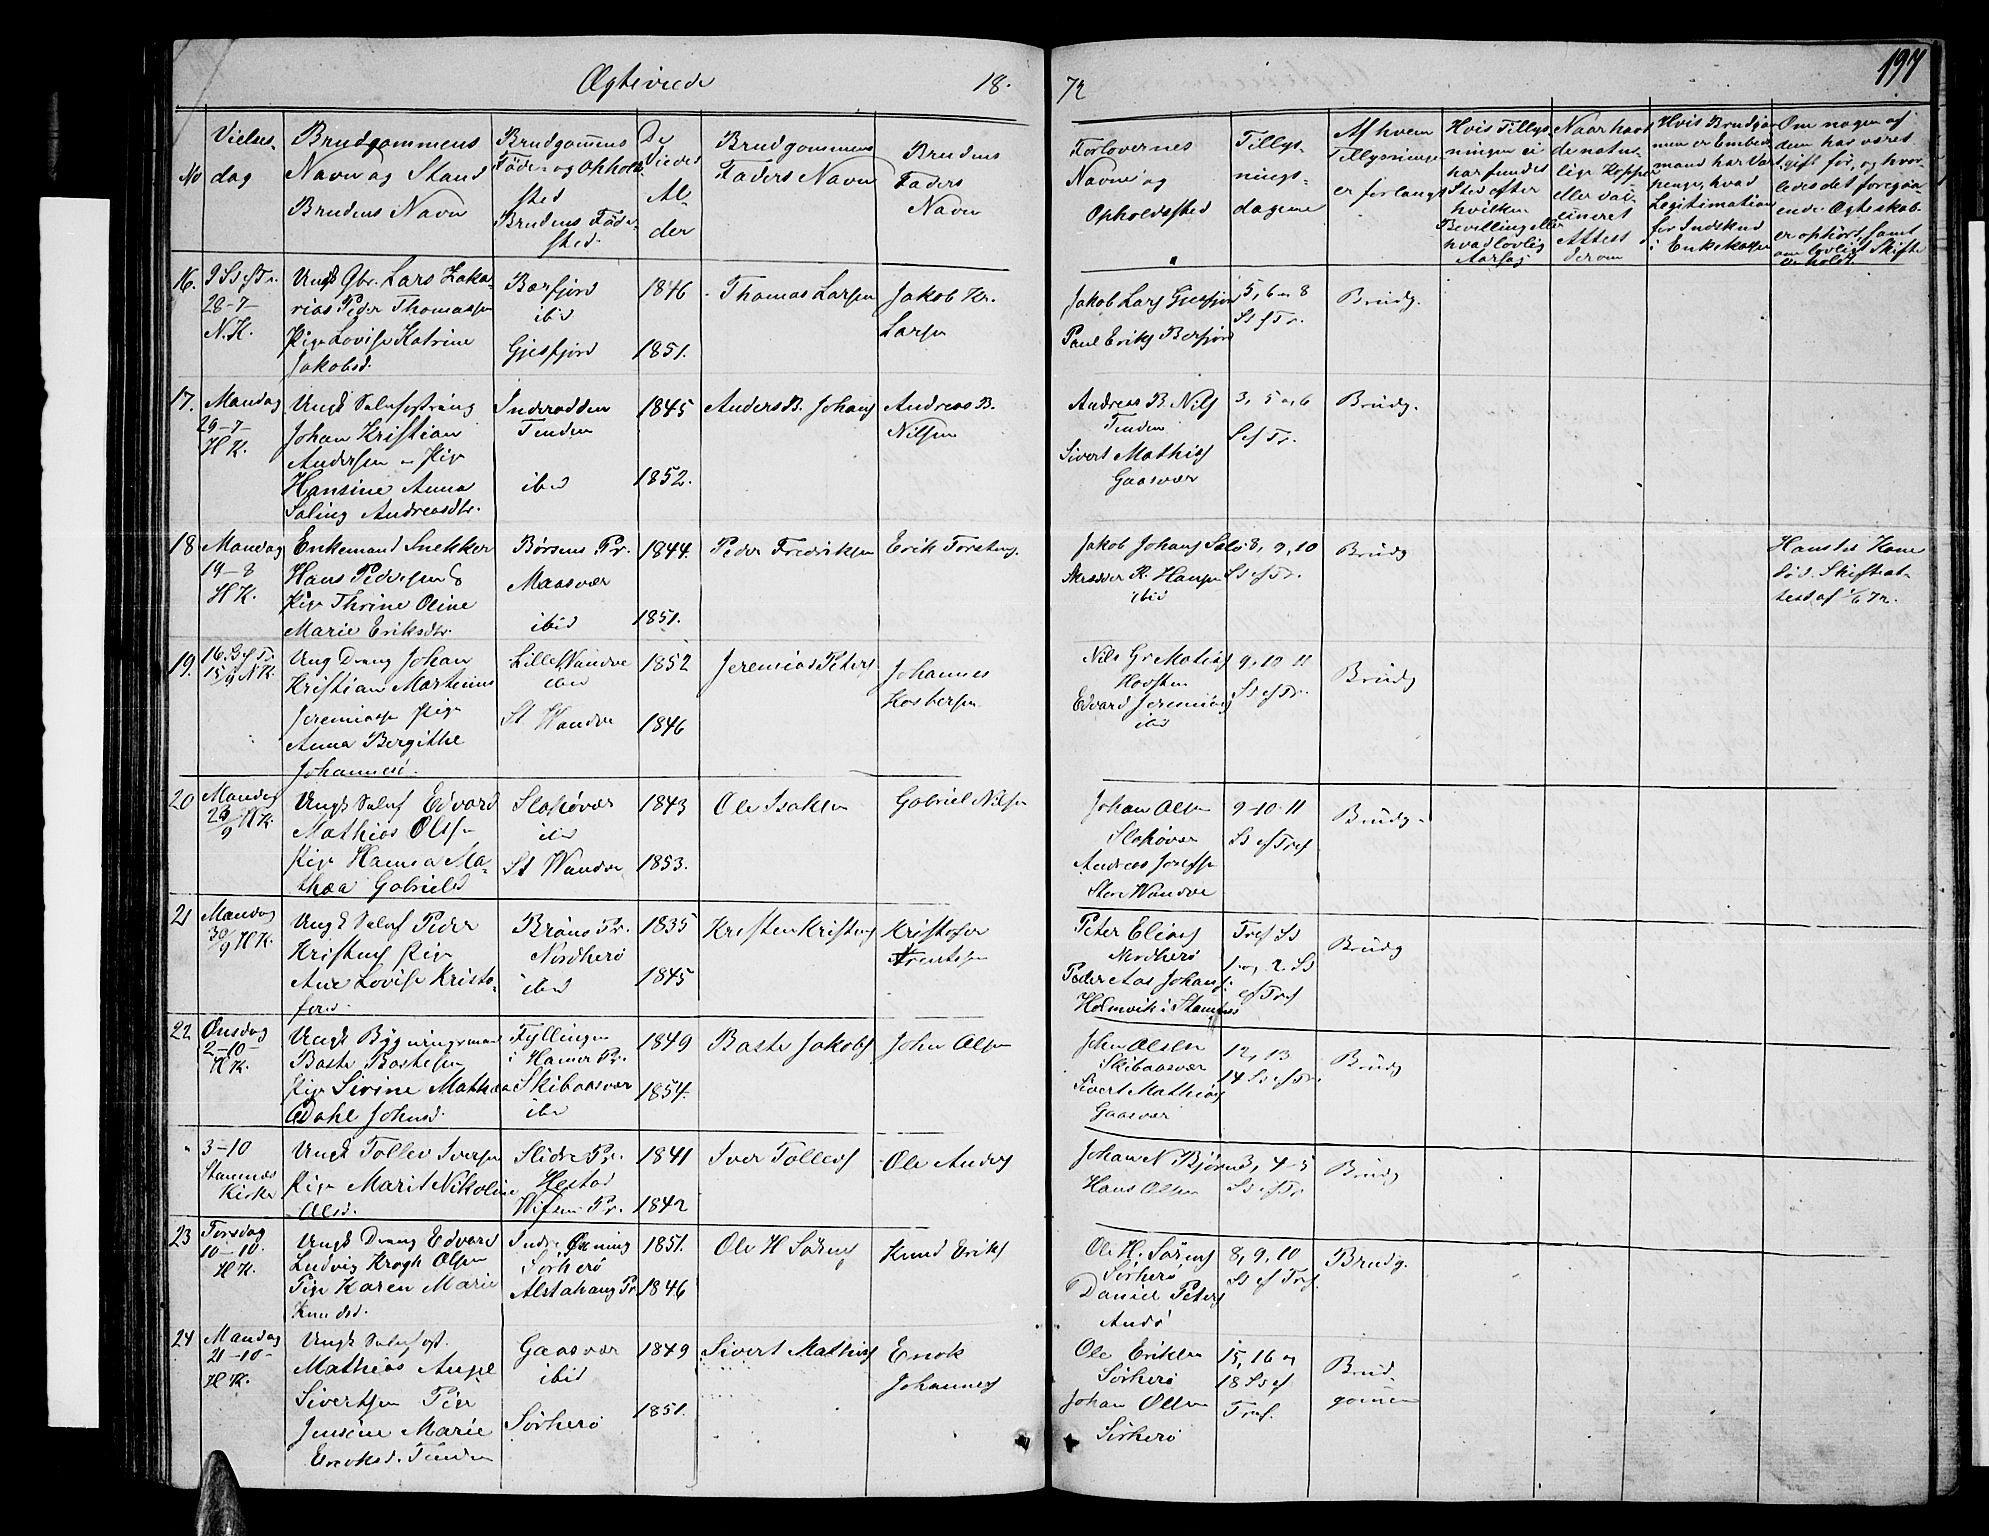 Ægteviede 18. 72 197
No
Vielses-
dag
Brudgommens
Navn og Stand
Brudens Navn
Brudgommens
Føde- og Opholds
sted
Brudens Føde-
sted.
De
Viedes
Al-
der
Brudgommens
Faders Navn
Brudens
Faders
Navn
Forlovernes
Navne og
Opholdssted
Tillys-
nings-
dagene
Af hvem
Tillysningen
er forlangt
Hvis Tillys
ningen ei
har fundet
Sted efter
hvilken
Bevilling eller
hvad lovlig
Aarsag
Naar havt
de natur-
lige Kopper
eller vac-
cineret
Attest
derom
Hvis Brudgom
men er Embeds
mand har Vart
penge, hvad
Legitimation
for Indskud
i Enkekassen
Om nogen af
dem har været
gift før, og hvor-
ledes det foregaa-
ende Ægteskab
er ophørt, samt
om lovligt Skifte
er holdt.
16.
9 S ef Tr.
28-7
N.K.
Ungk Gbr. Lars Zaka-
rias Peder Thomassen
Pige Lovise Katrine
Jakobsd.
Barfjord
ibid
Gjesfjord
1846
1851.
Thomas Larsen
Jakob Kr.
Larsen
Jakob Lars Gjesfjord
Paul Eriks Berfjord
5, 6 og 8
S ef Tr.
Brudg.
17.
Mandag
29-7
H K.
Ungk Selvfostring
Johan Kristian
Andersen og Pige
Hansine Anna
Andreasdtr.
Inderodden
Tenden
ibid
1845
1852.
Anders B. Johans
Andreas B.
Nilsen
Andreas B Nils
Tenden
Sivert Mathias
Gaasvær
3, 5 og 6
S ef Tr.
Brudg.
18
Mandag
19-8
H K.
Enkemand Snekker
Hans Pedersen &
Pige Thrine Oline
Marie Eriksdtr.
Børsens Pr.
Maasvær
ibid
1844.
1851.
Peder Fredriksen
Erik Torstens.
Jakob Johans
R. Hansen
ibid
8, 9, 10
S ef Tr.
Brudg
Kone
død. Skifteat-
test af 1/6 72.
19.
16. S ef Tr.
15/9 N K.
Ung Dreng Johan
Kristian Martinus
Jeremiass Pige
Anna Bergithe
Johannesd.
Lille Wandve
ibid
St Wandve
1852
1846
Jeremias Peters
Johannes
Nils Gr Matias
Hovsten
Edvard Jeremias
ibid
9, 10 11
S ef Tr.
Brudg
20
Mandag
/9 H K
Ungk Selvf Edvard
Mathias Olsen
Pige Hanna Ma-
thea Gabrielsd
Slapøvær
ibid
St Wandve
1843
1853.
Ole Isaksen
Gabriel Nilsen
Johan Olsen
Slapøvær
Andreas Josefsen
Store Wandve
9-10-11
S ef Tref
Brudg.
21
Mandag
30/9 H K.
Ungk Selvf Peder
Kristens Pige
Ane Lovise Kristo-
fersd.
Brønø Pr.
Nordherø
ibid
1835
1845
Kristen Kristens
Kristofer
Arentsen
Peter Elias
Nordherø
Peder Aas Johans.
Holmvik i Stamnes
Tref S
1. og 2. S
ef Tref
Brudg
22
Onsdag
2-10-
H K.
Ungk Bygningsmand
Baste Bastesen
Pige Sivine Mathea
Edahl Johnsd.
Fyllingen
i Hamer Pr.
Skibaasvær
ibid
1849
1854.
Baste Jakobs
John Olsen
John Olsen
Skibaasvær
Sivert Mathias
Gaasvær
12, 13
14 S ef Tr.
Brudg
"
3-10
Stamnes
Kirke
Ungk Tollev Iversen
Pige Marit Nikoline
Olsd.
Slidre Pr.
Hestad
Wefsen Pr.
1841
1842
Iver Tollevs
Ole Anders
Johan N Bjørn
Hans Olsen
3, 4-5
S ef Tr
Brudg
23
Torsdag
10-10.
H K.
Ungk Dreng Edvard
Ludvig Krogh Olsen
Pige Karen Marie
Knudsd.
Indre Øxning
Sørherø
Alstahaug Pr
1851.
1846
Ole H Sørens
Knud Eriks
Ole H. Sørens
Sørherø
Daniel Peters
Andø
8, 9, 10
S ef Tref.
Brudg.
24
Mandag
21-10-
H K.
Ungk Selvfost.
Mathias Angel
Sivertsen Pige
Jensine Marie
Enoksd. Tenden
Gaasvær
ibid
Sørherø
1849
1851.
Sivert Mathias
Enok
Johannes
Ole Eriksen
Sørherø
Johan Olsen
Sørherø
15, 16 og
18 S ef
Tref.
Brud-
gommen